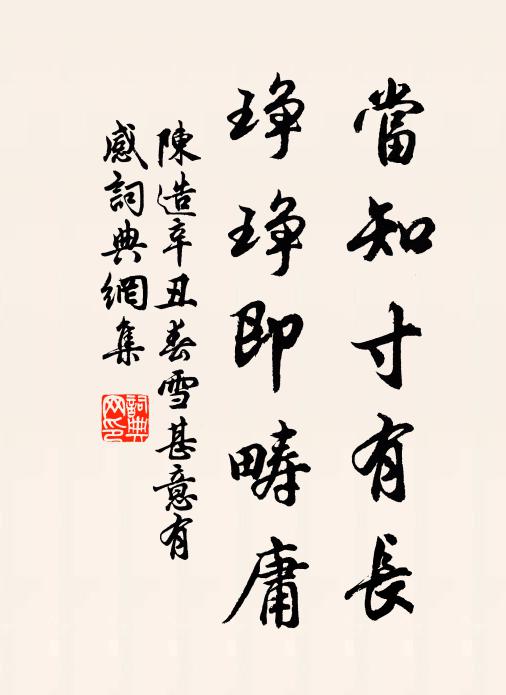 當知寸有長
琤琤即疇庸
陳造辛丑春雪甚意有
感詞典網集
詞典
网印